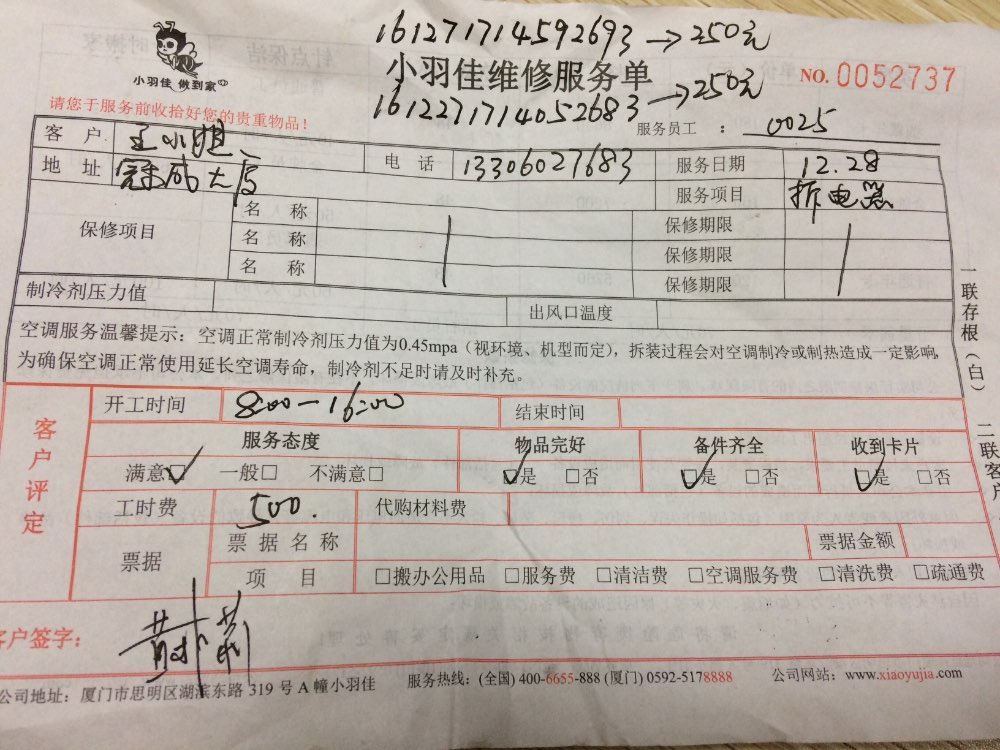 161271714592693→250元
小羽佳 做到家
小羽佳维修服务单
NO.0052737
1612271714052683→250元
请您于服务前收拾好您的贵重物品！
服务员工 ： 0025
客 户 王小姐 电 话 13306027683 服务日期 12.28
地 址 冠成大厦 服务项目 拆电器
保修项目
名 称 保修期限
名 称 保修期限
名 称 保修期限
制冷剂压力值 出风口温度
空调服务温馨提示：空调正常制冷剂压力值为0.45mpa（视环境、机型而定），拆装过程会对空调制冷或制热造成一定影响，
为确保空调正常使用延长空调寿命，制冷剂不足时请及时补充。
一联存根（白）
二联客户
客户评定
开工时间 8:00—16:00 结束时间
服务态度 物品完好 备件齐全 收到卡片
满意☑ 一般□ 不满意□ ☑是 □否 ☑是 □否 ☑是 □否
工时费 500. 代购材料费
票据 票据名称 票据金额
项 目 □搬办公用品 □服务费 □清洁费 □空调服务费 □清洗费 □疏通费
客户签字：
公司地址：厦门市思明区湖滨东路 319 号 A 幢小羽佳 服务热线：(全国) 400-6655-888 (厦门) 0592-5178888 公司网站：www.xiaoyujia.com